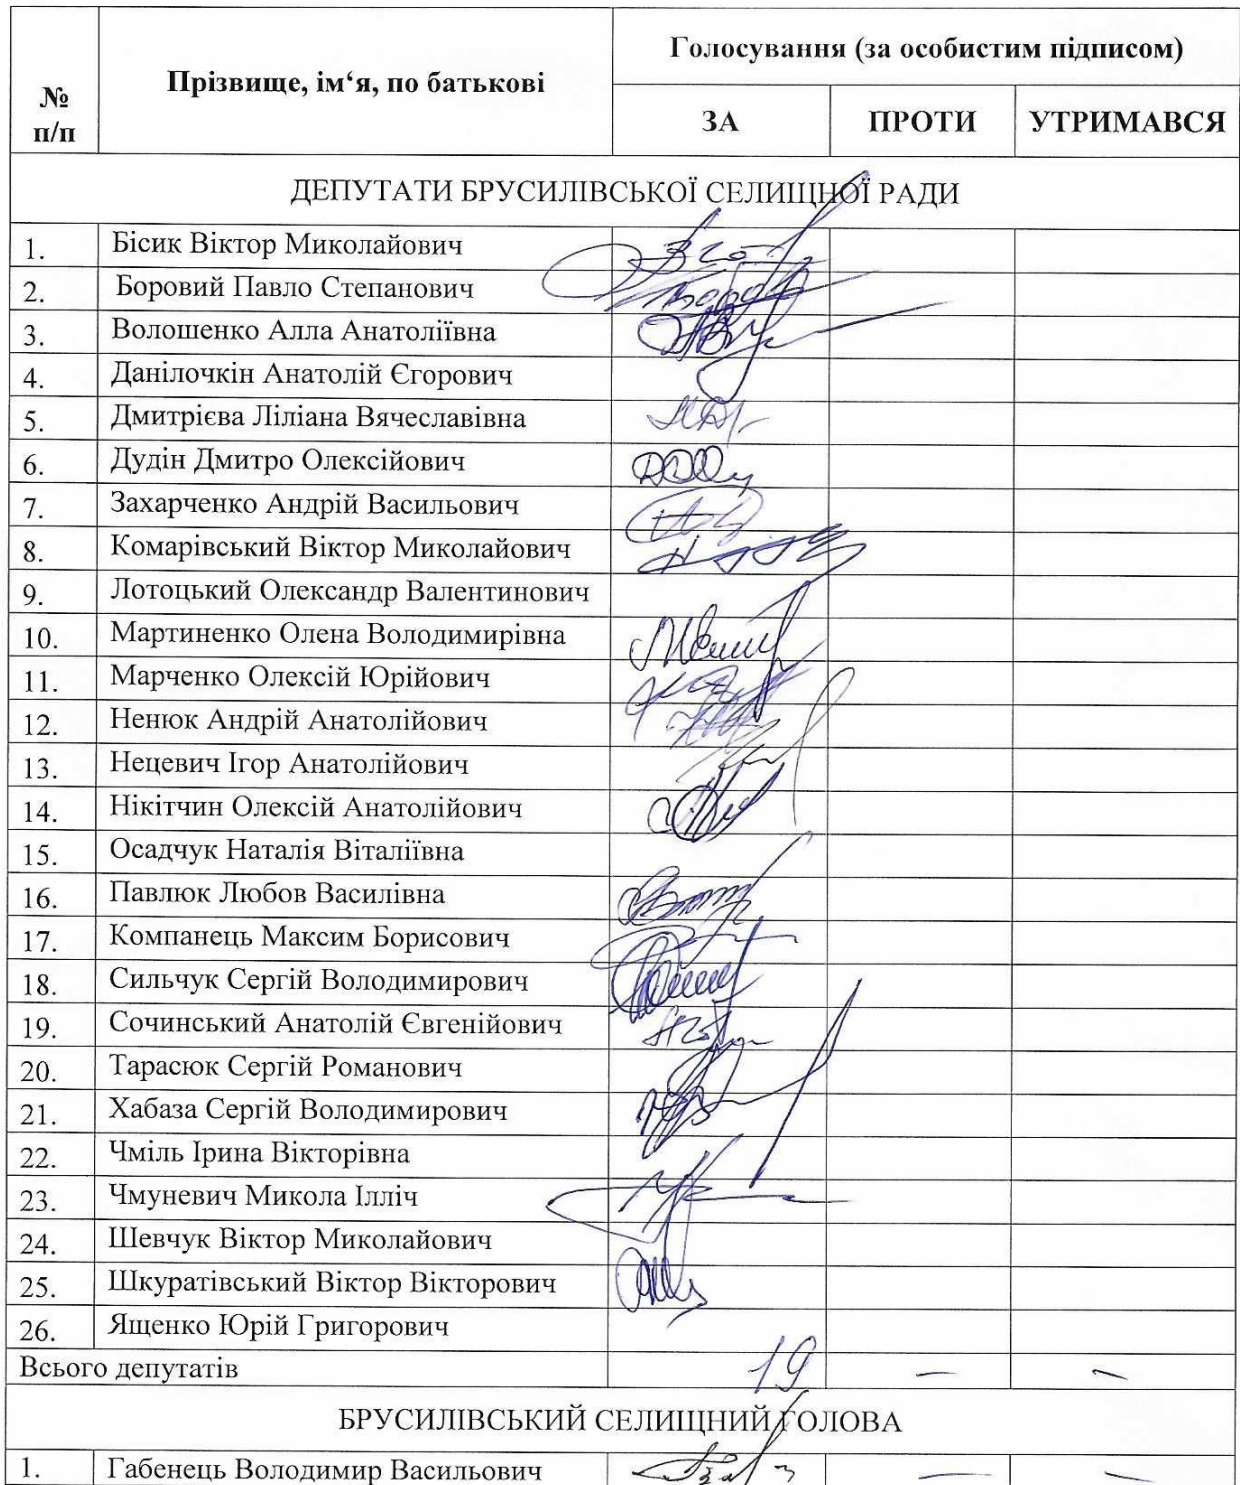 № п/п Прізвище, ім‘я, по батькові Голосування (за особистим підписом)
ЗА ПРОТИ УТРИМАВСЯ
ДЕПУТАТИ БРУСИЛІВСЬКОЇ СЕЛИЩНОЇ РАДИ
1. Бісик Віктор Миколайович
2. Боровий Павло Степанович
3. Волошенко Алла Анатоліївна
4. Данілочкін Анатолій Єгорович
5. Дмитрієва Ліліана Вячеславівна
6. Дудін Дмитро Олексійович
7. Захарченко Андрій Васильович
8. Комарівський Віктор Миколайович
9. Лотоцький Олександр Валентинович
10. Мартиненко Олена Володимирівна
11. Марченко Олексій Юрійович
12. Ненюк Андрій Анатолійович
13. Нецевич Ігор Анатолійович
14. Нікітчин Олексій Анатолійович
15. Осадчук Наталія Віталіївна
16. Павлюк Любов Василівна
17. Компанець Максим Борисович
18. Сильчук Сергій Володимирович
19. Сочинський Анатолій Євгенійович
20. Тарасюк Сергій Романович
21. Хабаза Сергій Володимирович
22. Чміль Ірина Вікторівна
23. Чмуневич Микола Ілліч
24. Шевчук Віктор Миколайович
25. Шкуратівський Віктор Вікторович
26. Ященко Юрій Григорович
Всього депутатів 19 — —
БРУСИЛІВСЬКИЙ СЕЛИЩНИЙ ГОЛОВА
1. Габенець Володимир Васильович — —